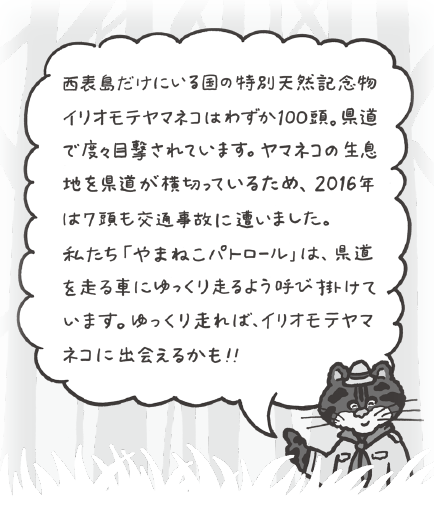 西表島だけにいる国の特別天然記念物
イリオモテヤマネコはわずか100頭。県道
で度々目撃されています。ヤマネコの生息
地を県道が横切っているため、2016年
は7頭も交通事故に遭いました。
私たち「やまねこパトロール」は、県道
を走る車にゆっくり走るよう呼び掛けて
います。ゆっくり走れば、イリオモテヤマ
ネコに出会えるかも!!